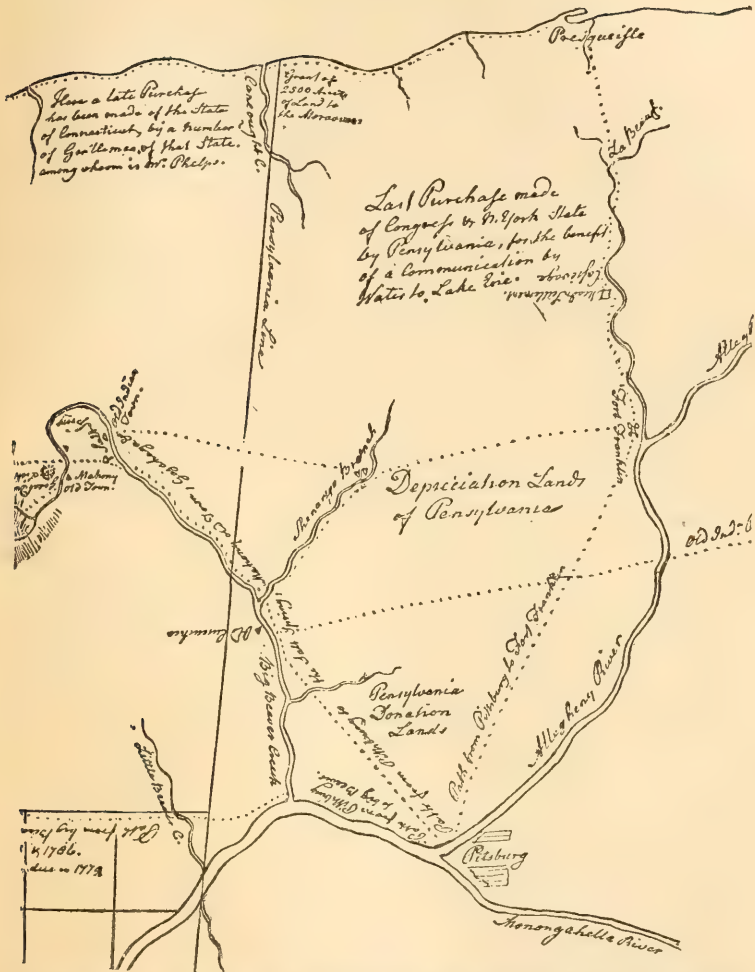 Presqueisle
Here a late Purchase
has been made of the State
of Connecticut, by a number
of Gentlemen, of that State.
among whom is Mr. Phelps.
Coneought C.
Grant of
2500 Acres
of Land to
the
La Beauf.
Last Purchase made
of Congress & N. York State
by Pensylvania, for the benefit
of a Communication by
Water to Lake Erie.
Pensylvania Line
Fort Franklin
Old Indian
Town.
a Mahony
Old Town.
Shenango Branch
Depriciation Lands
of Pensylvania
Old Ind.
Big Beaver Creek
Pensylvania
Donation
Lands
Path from Pittsburg to Fort Franklin
Allegheny River
Little C.
Path from Pittsburg to
Path from Pittsburg
to big Beaver.
Path from big
1786.
1772
Pitsburg
Monongahella River